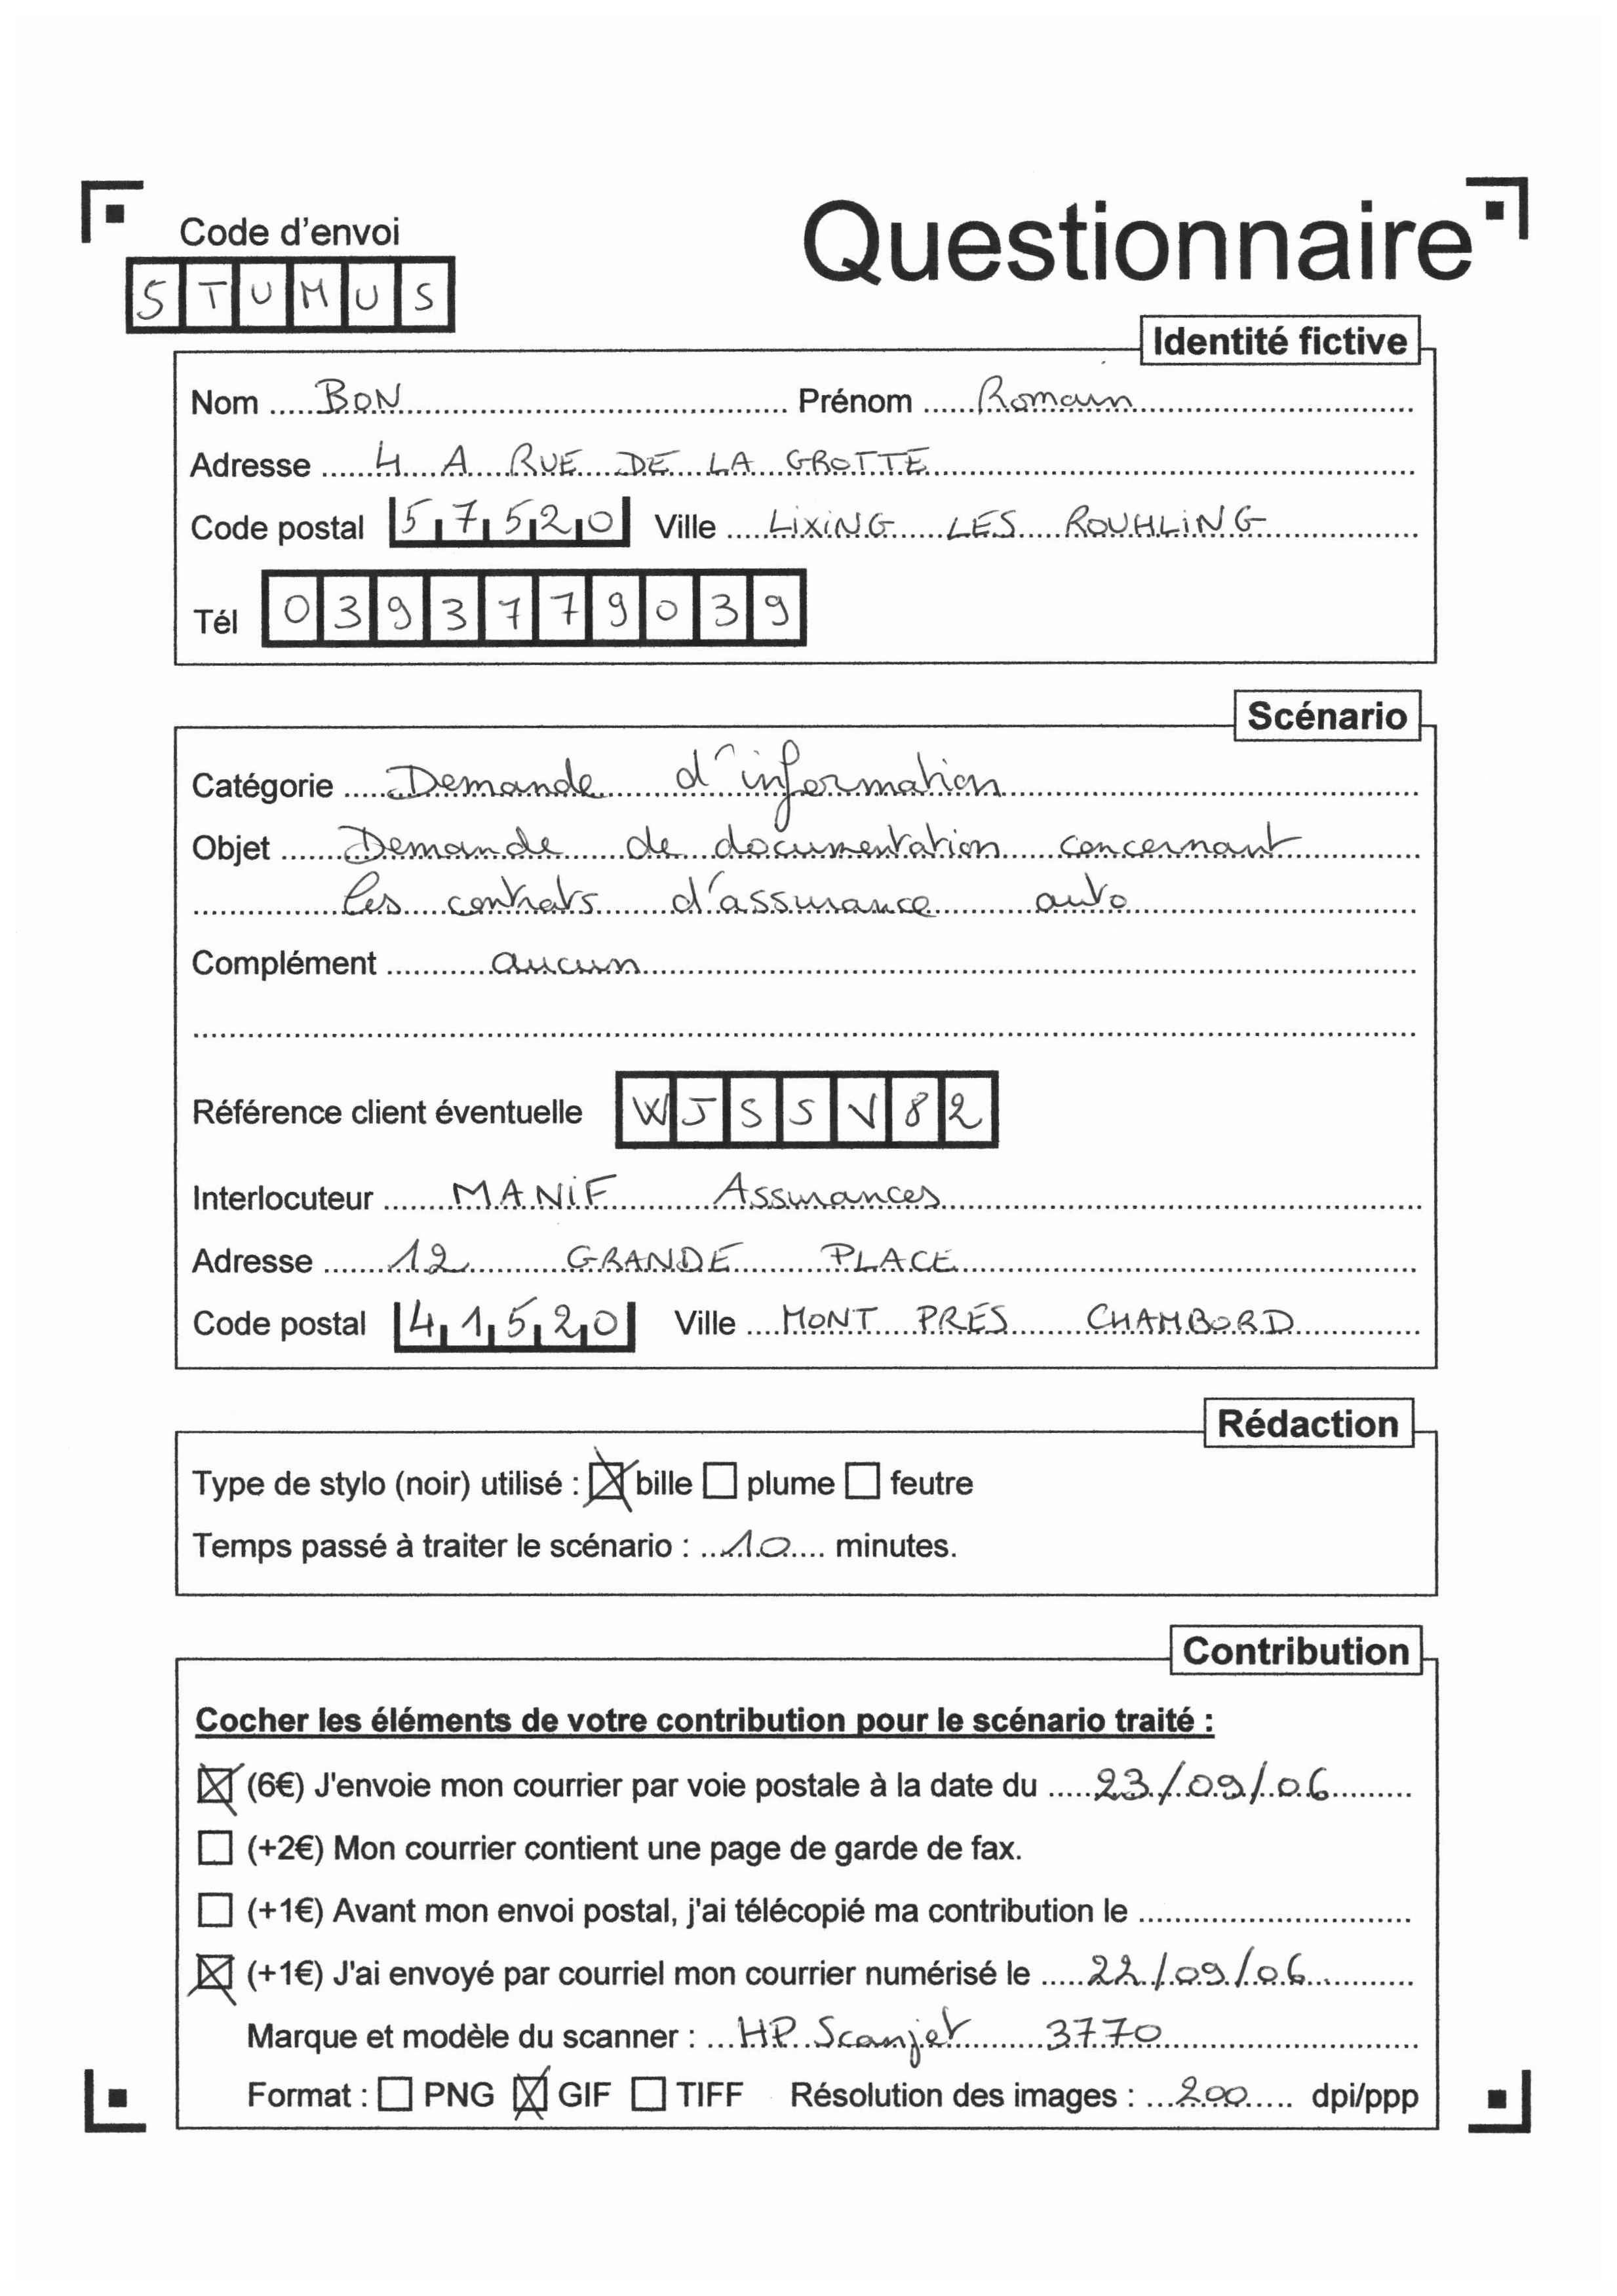 Code d'envoi
Questionnaire
STUMUS
Identité fictive
Nom BON Prénom Romain
Adresse 4 A RUE DE LA GROTTE
Code postal 57520 Ville LIXING LES ROUHLING
Tél 0393779039
Scénario
Catégorie Demande d'information
Objet Demande de documentation concernant
les contrats d'assurance auto
Complément aucun
Référence client éventuelle WJSSV82
Interlocuteur MANIF Assurances
Adresse 12 GRANDE PLACE
Code postal 41520 Ville MONT PRES CHAMBORD
Rédaction
Type de stylo (noir) utilisé : ☒ bille ☐ plume ☐ feutre
Temps passé à traiter le scénario : 10 minutes.
Contribution
Cocher les éléments de votre contribution pour le scénario traité :
☒ (6€) J'envoie mon courrier par voie postale à la date du 23/09/06
☐ (+2€) Mon courrier contient une page de garde de fax.
☐ (+1€) Avant mon envoi postal, j'ai télécopié ma contribution le
☒ (+1€) J'ai envoyé par courriel mon courrier numérisé le 22/09/06
Marque et modèle du scanner : HP Scanjet 3770
Format : ☐ PNG ☒ GIF ☐ TIFF Résolution des images : 200 dpi/ppp